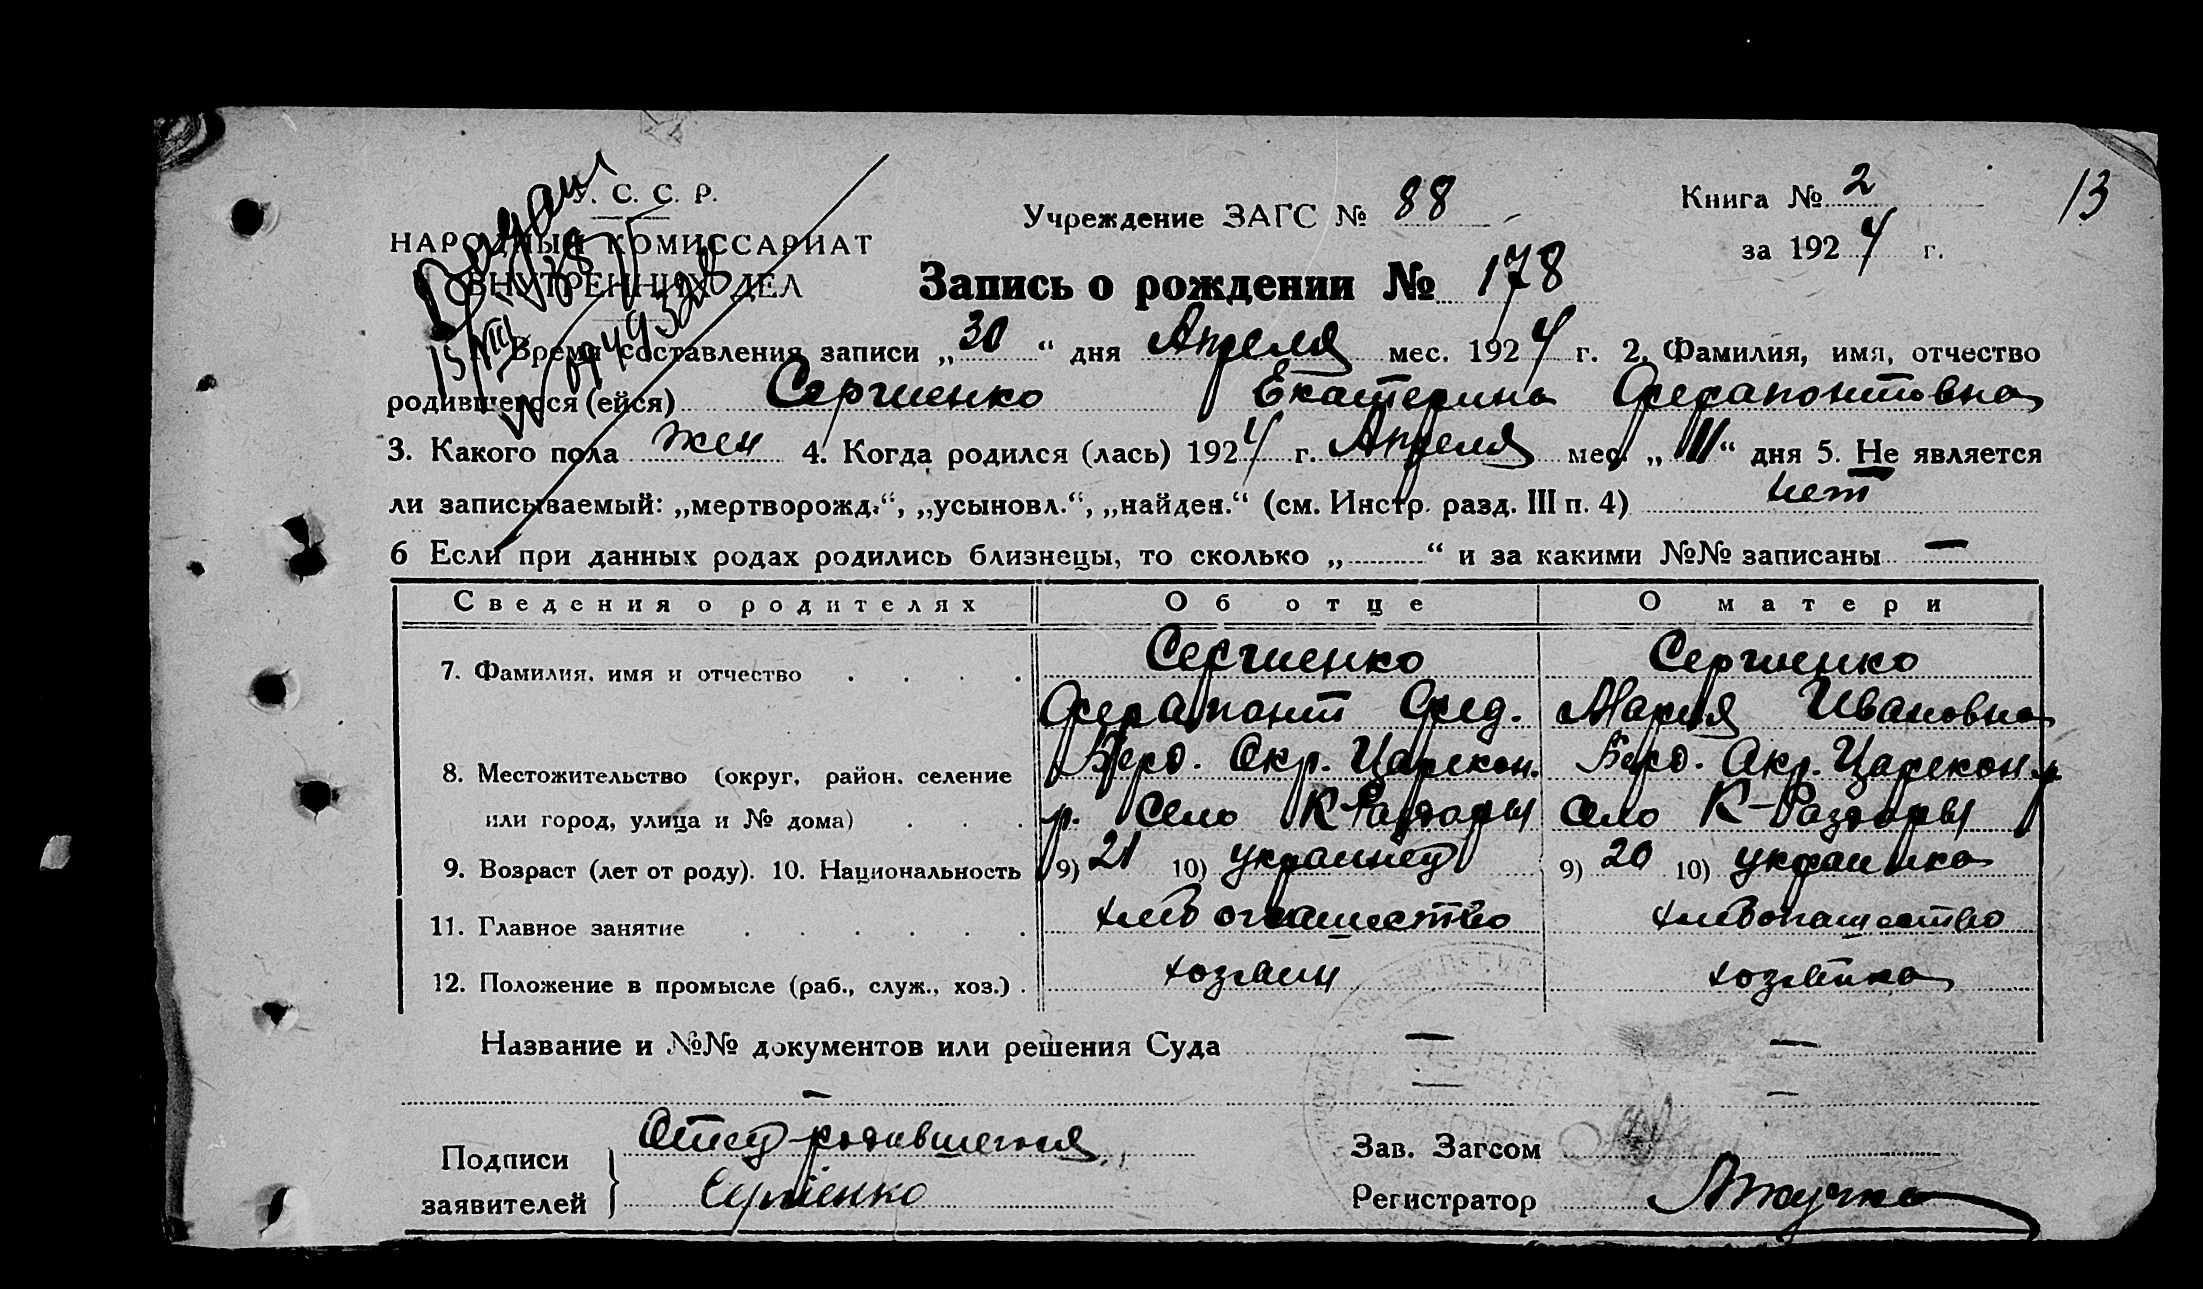 У. С. С. Р.
НАРОДНЫЙ КОМИССАРИАТ
ВНУТРЕННИХ ДЕЛ
Учреждение ЗАГС № 88
Книга № 2
за 1924 г.
13
Запись о рождении № 178
Время составления записи „30“ дня Апреля мес. 1924 г. 2. Фамилия, имя, отчество
родившегося (ейся) Сергиенко Екатерина Ферапонтовна
3. Какого пола жен 4. Когда родился (лась) 1924 г. Апреля мес. „ “ дня 5. Не является
ли записываемый: „мертворожд.“, „усыновл.“, „найден.“ (см. Инстр. разд. III п. 4) нет
6 Если при данных родах родились близнецы, то сколько „ “ и за какими №№ записаны —
Сведения о родителях Об отце О матери
7. Фамилия, имя и отчество Сергиенко Сергиенко
Ферапонт Фед. Мария Ивановна
8. Местожительство (округ, район, селение Берд. Окр. Царекон. Берд. Окр. Царекон. р.
или город, улица и № дома) р. Село К-Раздоры Село К-Раздоры
9. Возраст (лет от роду). 10. Национальность 9) 21 10) украинец 9) 20 10) украинка
11. Главное занятие хлебопашество хлебопашество
12. Положение в промысле (раб., служ., хоз.) хозяин хозяйка
Название и №№ документов или решения Суда — —
Подписи заявителей
Отец родившегося
Сергіенко
Зав. Загсом
Регистратор